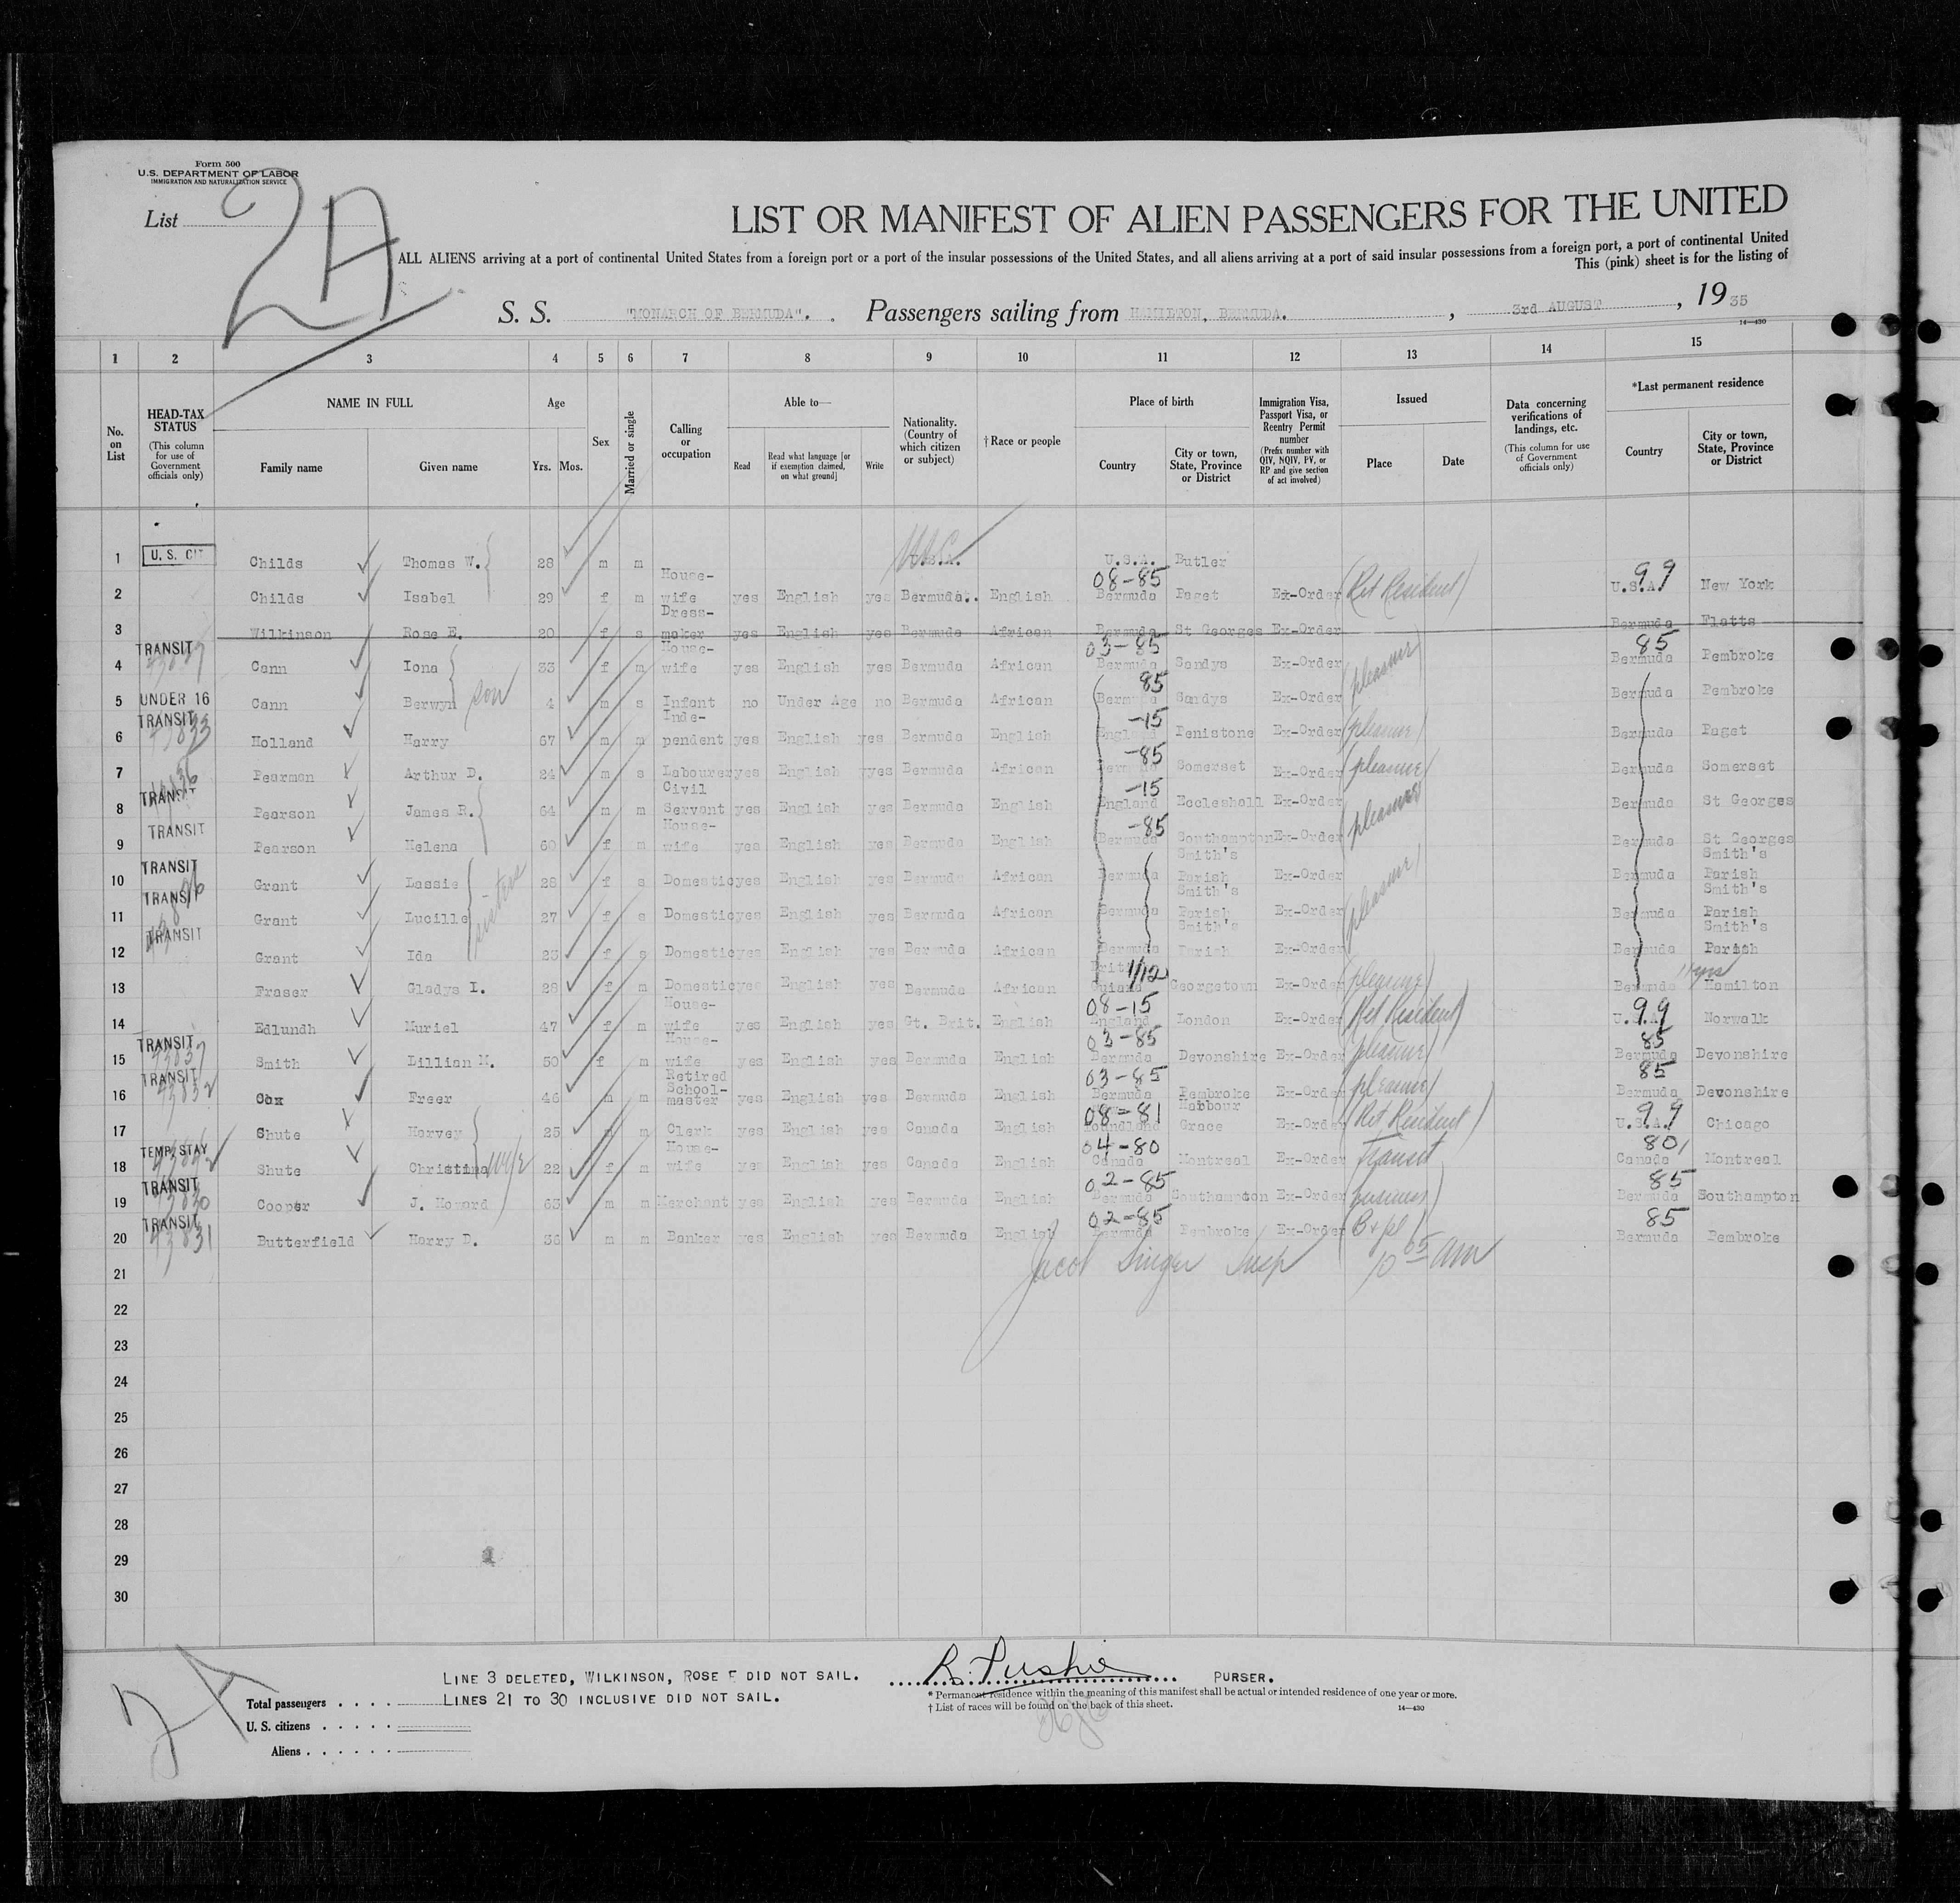 Form 500
U.S. DEPARTMENT OF LABOR
IMMIGRATION AND NATURALIZATION SERVICE
List 2A
LIST OR MANIFEST OF ALIEN PASSENGERS FOR THE UNITED
ALL ALIENS arriving at a port of continental United States from a foreign port or a port of the insular possessions of the United States, and all aliens arriving at a port of said insular possessions from a foreign port, a port of continental United
This (pink) sheet is for the listing of
S. S. "MONARCH OF BERMUDA". Passengers sailing from HAMILTON, BERMUDA. , 3rd AUGUST , 19 35
14—430
1 2 3 4 5 6 7 8 9 10 11 12 13 14 15
No. on List
HEAD-TAX STATUS (This column for use of Government officials only)
NAME IN FULL Family name Given name
Age Yrs. Mos.
Sex
Married or single
Calling or occupation
Able to— Read Read what language [or if exemption claimed, on what ground] Write
Nationality. (Country of which citizen or subject)
† Race or people
Place of birth Country City or town, State, Province or District
Immigration Visa, Passport Visa, or Reentry Permit number (Prefix number with QIV, NQIV, PV, or RP and give section of act involved)
Issued Place Date
Data concerning verifications of landings, etc. (This column for use of Government officials only)
*Last permanent residence Country City or town, State, Province or District
1 U. S. CIT Childs Thomas W. 28 m m U.S.A. U.S.A. Butler
2 Childs Isabel 29 f m House-wife yes English yes Bermuda. English 08-85 Bermuda Paget Ex-Order (Ret Resident) 99 U.S.A. New York
3 Wilkinson Rose E. 20 f s Dress-maker yes English yes Bermuda African Bermuda St Georges Ex-Order Bermuda Flatts
4 TRANSIT Cann Iona 33 f m House-wife yes English yes Bermuda African 03-85 Bermuda Sandys Ex-Order (pleasure) 85 Bermuda Pembroke
5 UNDER 16 Cann Berwyn son 4 m s Infant no Under Age no Bermuda African 85 Bermuda Sandys Ex-Order Bermuda Pembroke
6 TRANSIT Holland Harry 67 m m Inde-pendent yes English yes Bermuda English -15 England Penistone Ex-Order (pleasure) Bermuda Paget
7 Pearman Arthur D. 24 m s Labourer yes English yes Bermuda African -85 Bermuda Somerset Ex-Order (pleasure) Bermuda Somerset
8 TRANSIT Pearson James R. 64 m m Civil Servant yes English yes Bermuda English -15 England Eccleshall Ex-Order (pleasure) Bermuda St Georges
9 TRANSIT Pearson Helena 60 f m House-wife yes English yes Bermuda English -85 Bermuda Southampton Ex-Order Bermuda St Georges
10 TRANSIT Grant Lassie sisters 28 f s Domestic yes English yes Bermuda African Bermuda Smith's Parish Ex-Order Bermuda Smith's Parish
11 TRANSIT Grant Lucille 27 f s Domestic yes English yes Bermuda African Bermuda Smith's Parish Ex-Order (pleasure) Bermuda Smith's Parish
12 TRANSIT Grant Ida 23 f s Domestic yes English yes Bermuda African Bermuda Smith's Parish Ex-Order Bermuda Smith's Parish
13 Fraser Gladys I. 28 f m Domestic yes English yes Bermuda African Brit. Guiana Georgetown Ex-Order (pleasure) Bermuda Hamilton
14 Edlundh Muriel 47 f m House-wife yes English yes Gt. Brit. English 08-15 England London Ex-Order (Ret Resident) 99 U.S.A. Norwalk
15 TRANSIT Smith Lillian M. 50 f m House-wife yes English yes Bermuda English 03-85 Bermuda Devonshire Ex-Order (pleasure) 85 Bermuda Devonshire
16 TRANSIT Cox Freer 46 m m Retired School-master yes English yes Bermuda English 03-85 Bermuda Pembroke Ex-Order (pleasure) 85 Bermuda Devonshire
17 Shute Harvey 25 m m Clerk yes English yes Canada English 08-81 Harbour Grace Ex-Order (Ret Resident) 99 U.S.A. Chicago
18 TEMP. STAY Shute Christina wife 22 f m House-wife yes English yes Canada English 04-80 Canada Montreal Ex-Order Transit 80 Canada Montreal
19 TRANSIT 43830 Cooper J. Howard 63 m m Merchant yes English yes Bermuda English 02-85 Bermuda Southampton Ex-Order (business) 85 Bermuda Southampton
20 TRANSIT 43831 Butterfield Harry D. 36 m m Banker yes English yes Bermuda English 02-85 Bermuda Pembroke Ex-Order (B & pl) 85 Bermuda Pembroke
21 Jacob Singer Insp 10 05 AM
22
23
24
25
26
27
28
29
30
2A
LINE 3 DELETED, WILKINSON, ROSE E DID NOT SAIL.
LINES 21 TO 30 INCLUSIVE DID NOT SAIL.
PURSER.
Total passengers
U. S. citizens
Aliens
* Permanent residence within the meaning of this manifest shall be actual or intended residence of one year or more.
† List of races will be found on the back of this sheet.
14—430